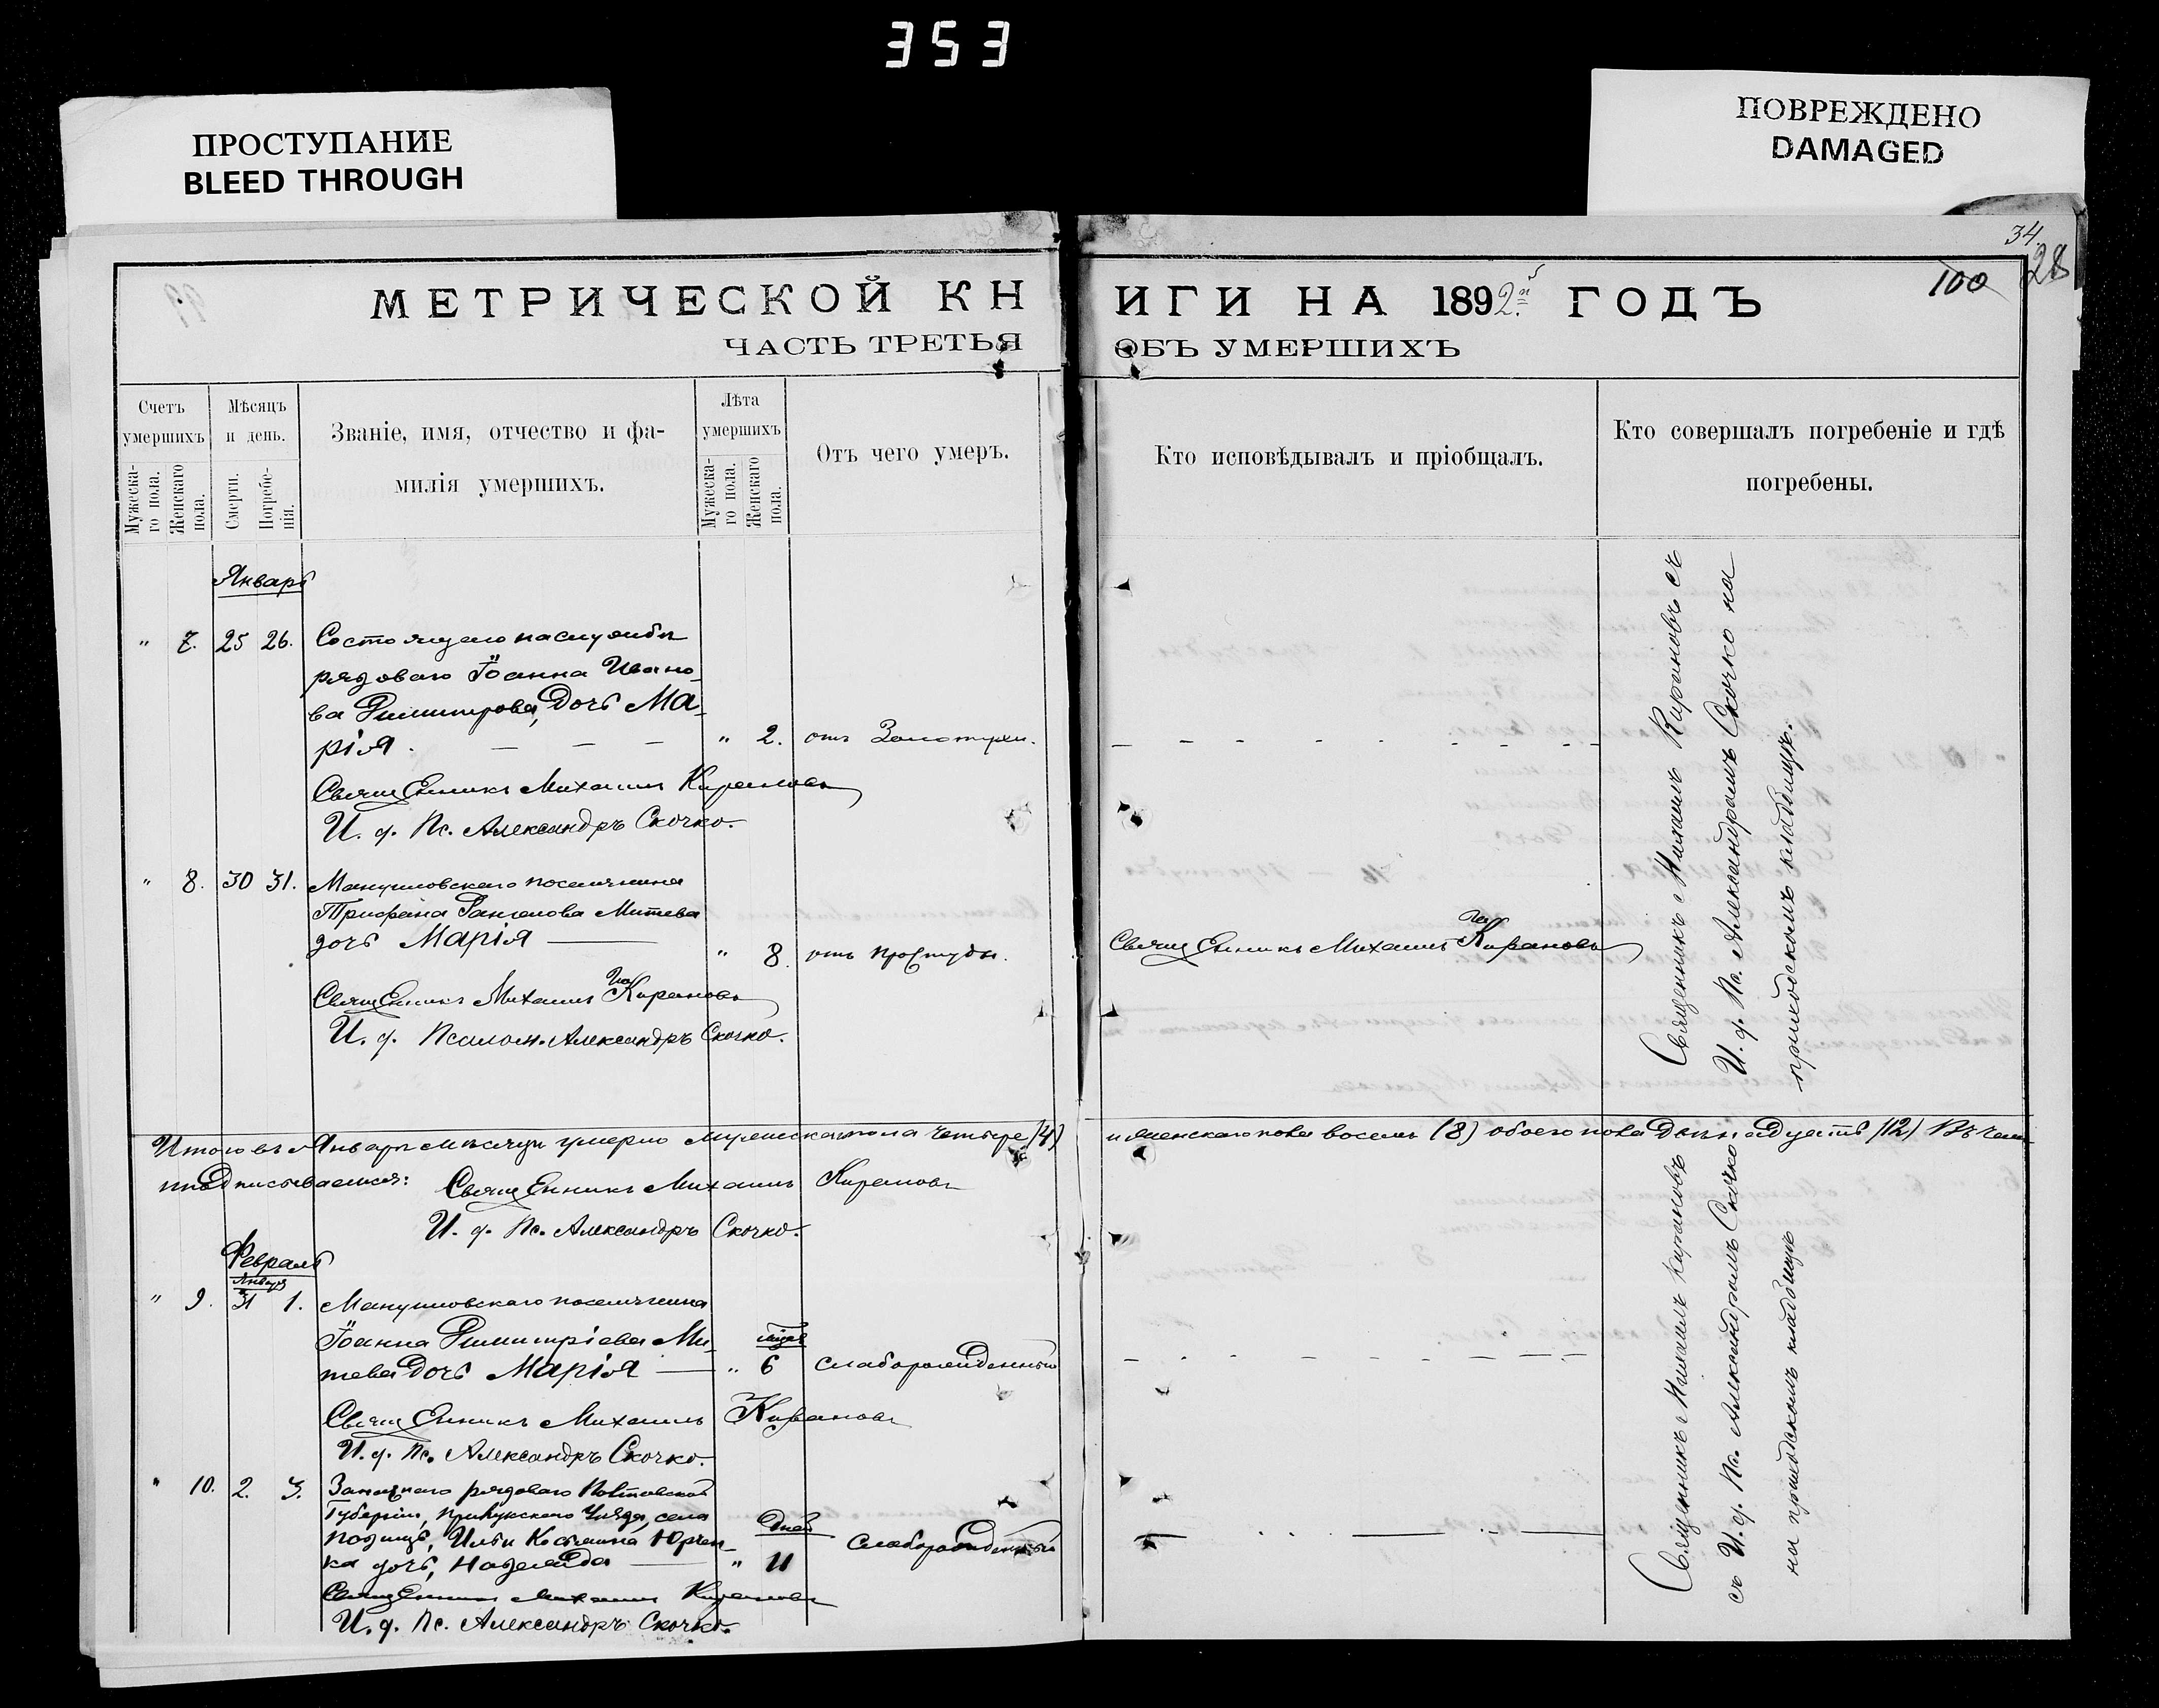 353
ПРОСТУПАНИЕ
BLEED THROUGH
ПОВРЕЖДЕНО
DAMAGED
34
28
100
МЕТРИЧЕСКОЙ КН
ИГИ НА 1892 ГОДЪ
ЧАСТЬ ТРЕТЬЯ
ОБЪ УМЕРШИХЪ
Счетъ умершихъ
Мужеска-го пола.
Женскаго пола.
Мѣсяцъ и день.
Смерти.
Погребе-нія.
Званіе, имя, отчество и фа-
милія умершихъ.
Лѣта умершихъ
Мужеска-го пола.
Женскаго пола.
Отъ чего умеръ.
Кто исповѣдывалъ и пріобщалъ.
Кто совершалъ погребеніе и гдѣ
погребены.
Январь
" 7. 25 26. Состоящаго на службѣ
рядоваго Іоанна Ивано-
ва Димитрова, дочь Ма-
рія. — — — " 2. отъ Золотухи.
Священникъ Михаилъ Кирановъ
И. д. Пс. Александръ Скочко.
" 8. 30 31. Манушовскаго поселянина
Трифана Рангелова Митева
дочь Марія — " 8. отъ простуды.
Священникъ Михаилъ Кирановъ
Священникъ Михаилъ Кирановъ
И. д. Псалом. Александръ Скочко.
Священникъ Михаилъ Кирановъ съ
И. д. Пс. Александромъ Скочко на
приходскомъ кладбищѣ.
Итого въ Январѣ мѣсяцѣ умерло мужеска пола четыре (4) и женскаго пола восемь (8) обоего пола двѣнадцать (12) Въ чемъ
и подписываемся: Священникъ Михаилъ Кирановъ
И. д. Пс. Александръ Скочко.
Февраль
Января
" 9. 31 1. Манушовскаго поселянина
Іоанна Димитріева Ми-
тева дочь Марія — " 6 слаборожденный
Священникъ Михаилъ Кирановъ
И. д. Пс. Александръ Скочко.
" 10. 2. 3. Запаснаго рядоваго Полтавской
Губерніи, Прилукскаго Уѣзда, села
дочь, Надежда — дней " 11 слаборожденный
Священникъ Михаилъ Кирановъ
И. д. Пс. Александръ Скочко.
Священникъ Михаилъ Кирановъ
съ И. д. Пс. Александромъ Скочко
на приходскомъ кладбищѣ